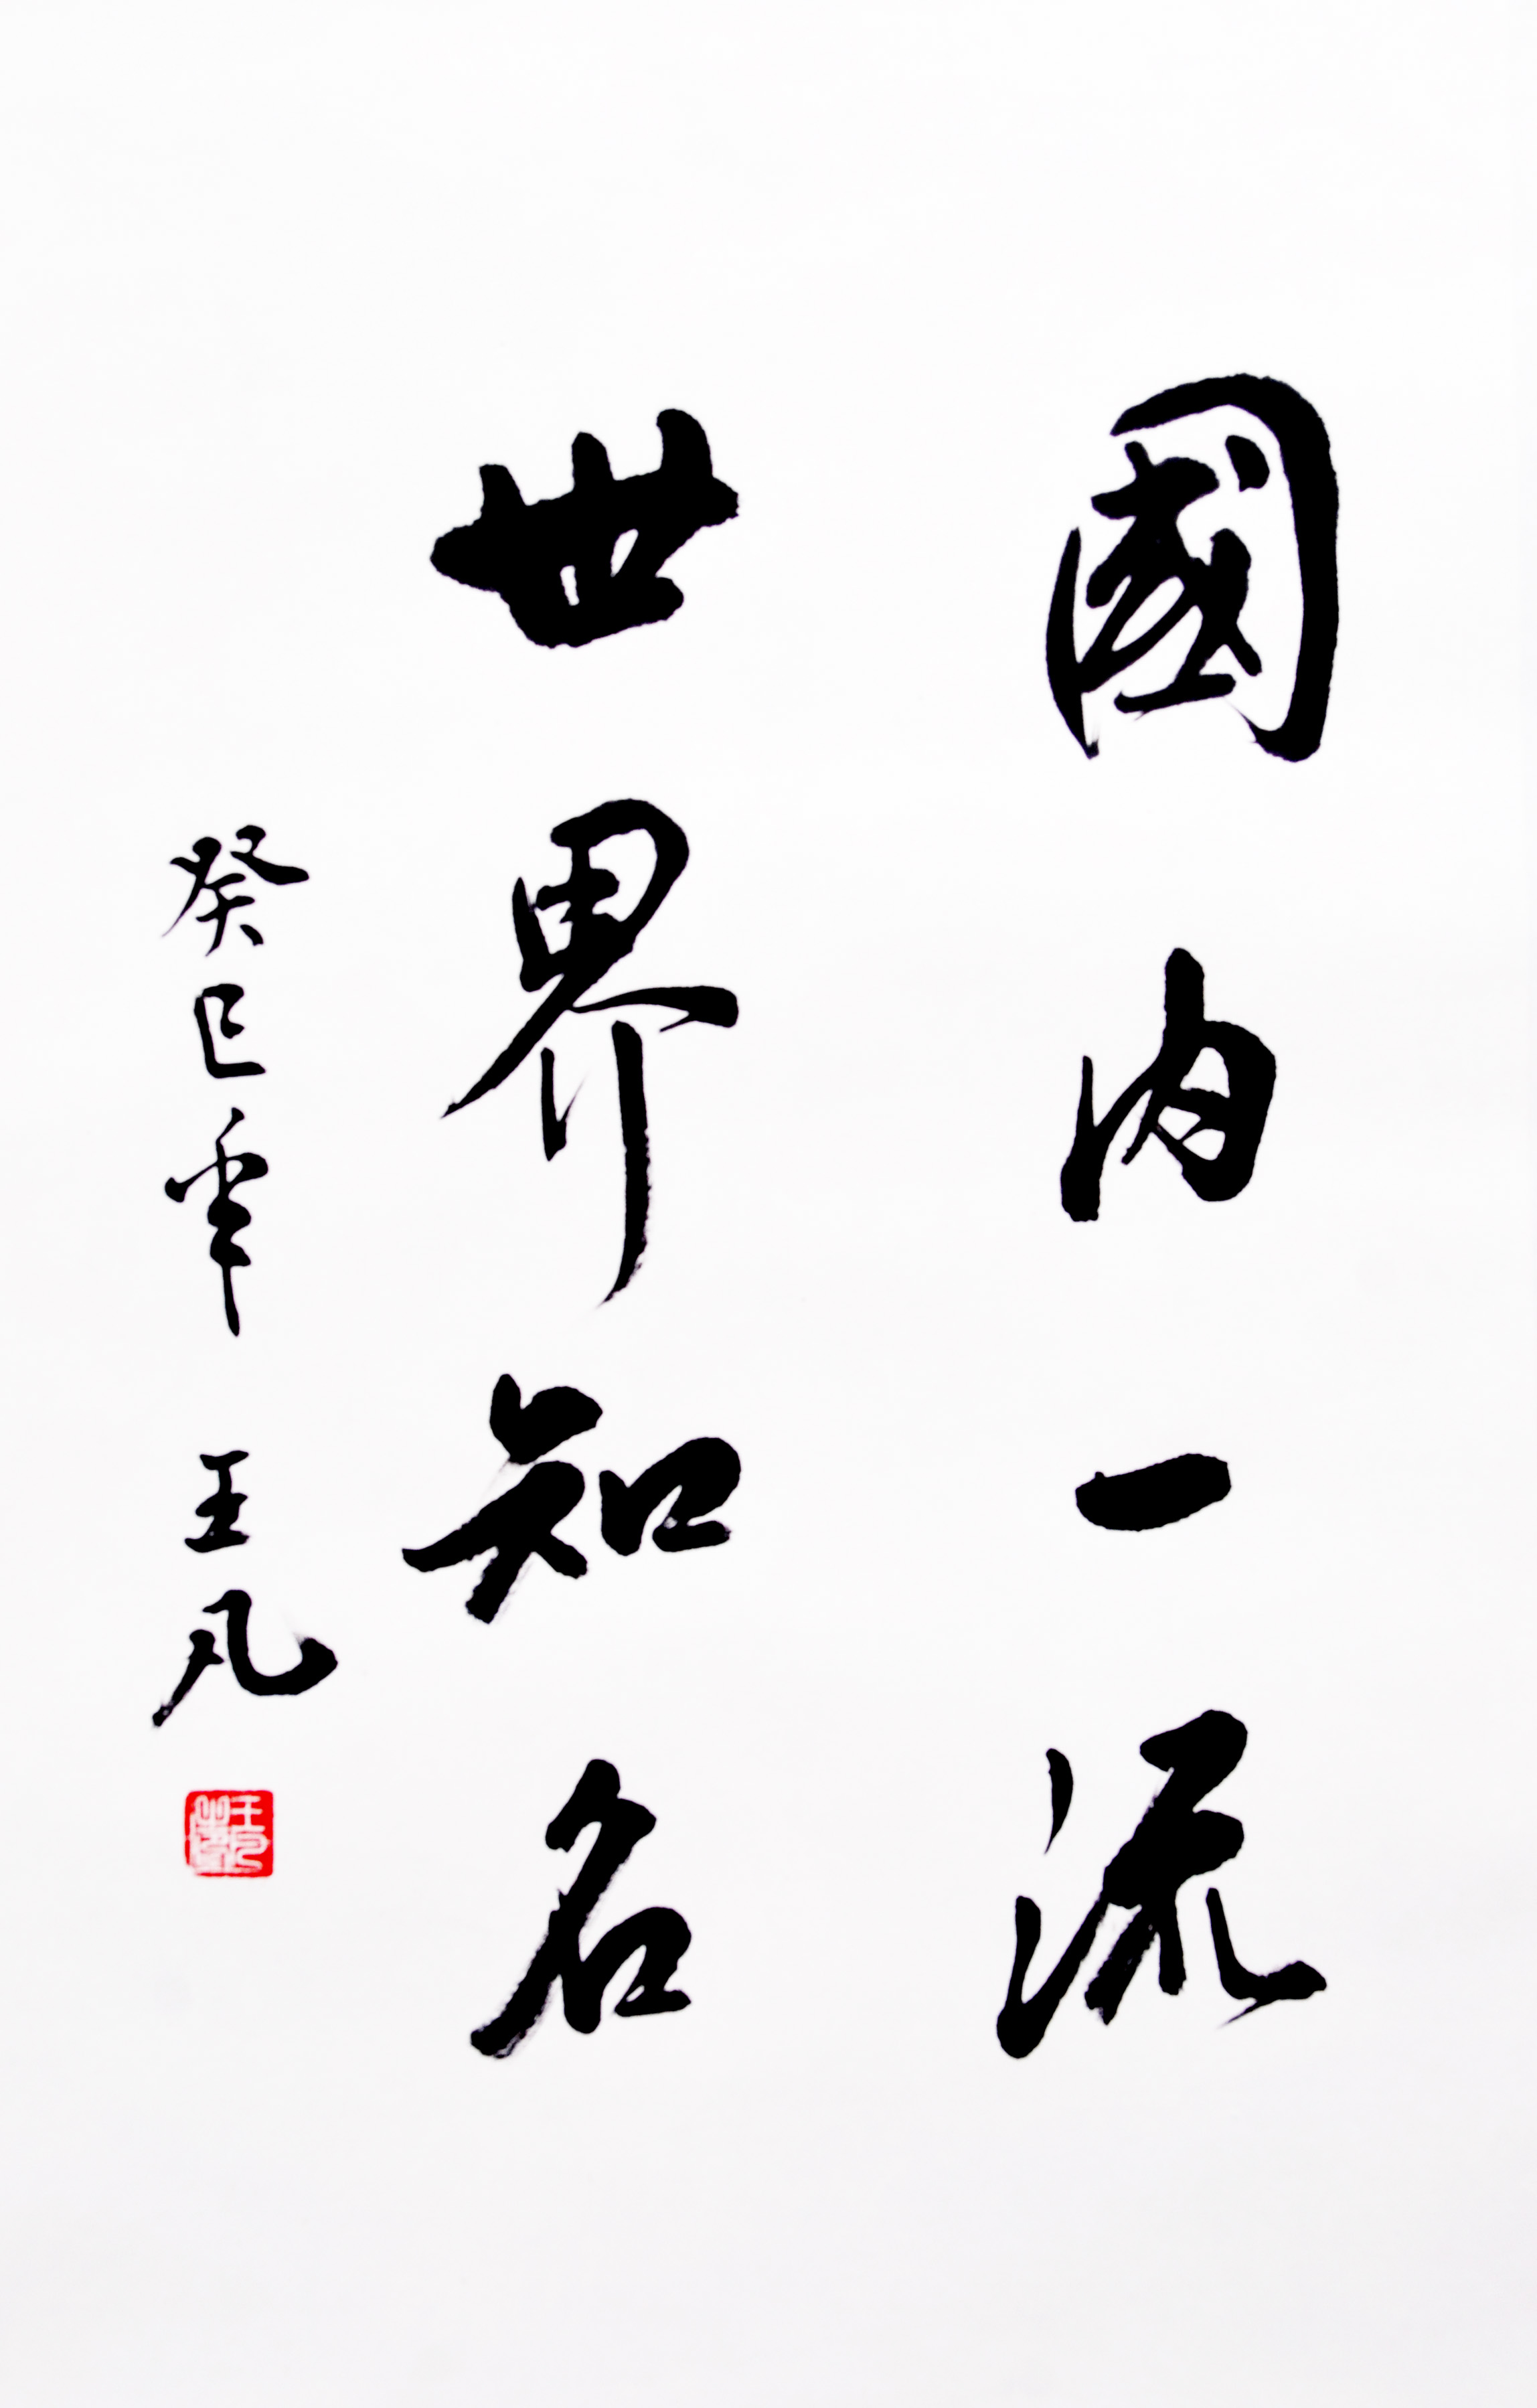 國内一流
世界知名
癸巳年 王凡